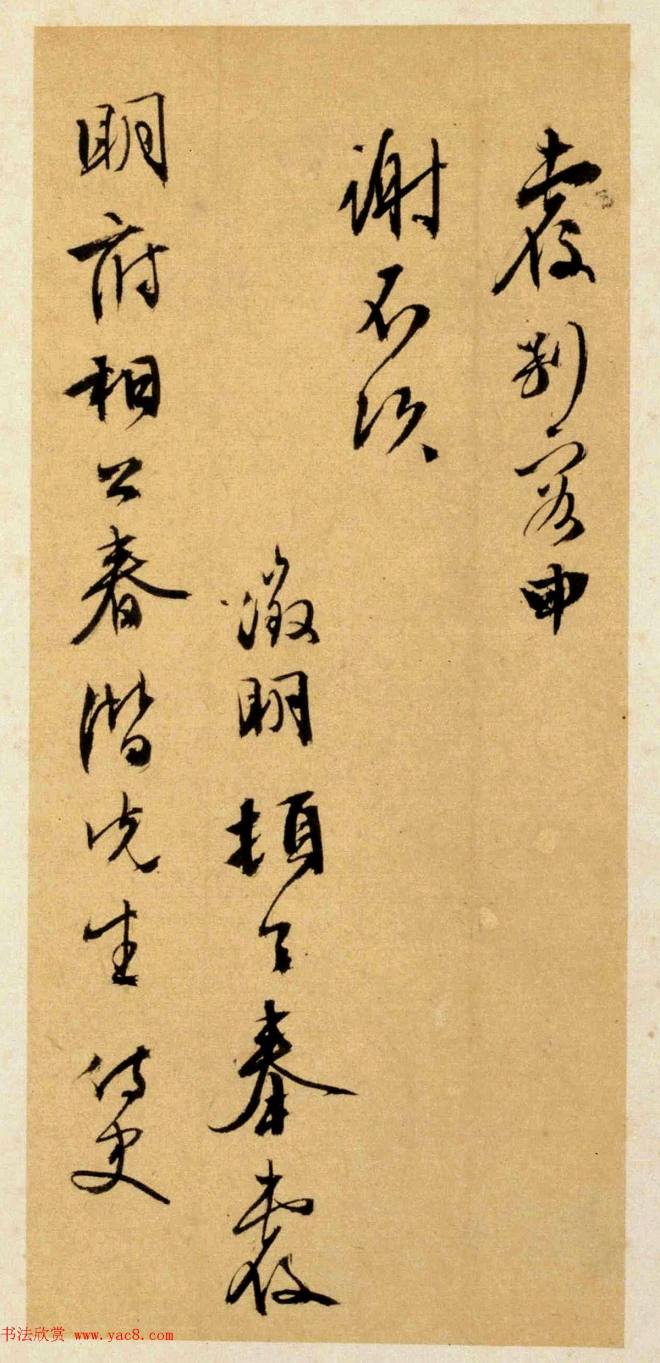 覆別容申
謝不次
徵明頓首奉覆
明府相公春潛先生 侍史
书法欣赏 www.yac8.com